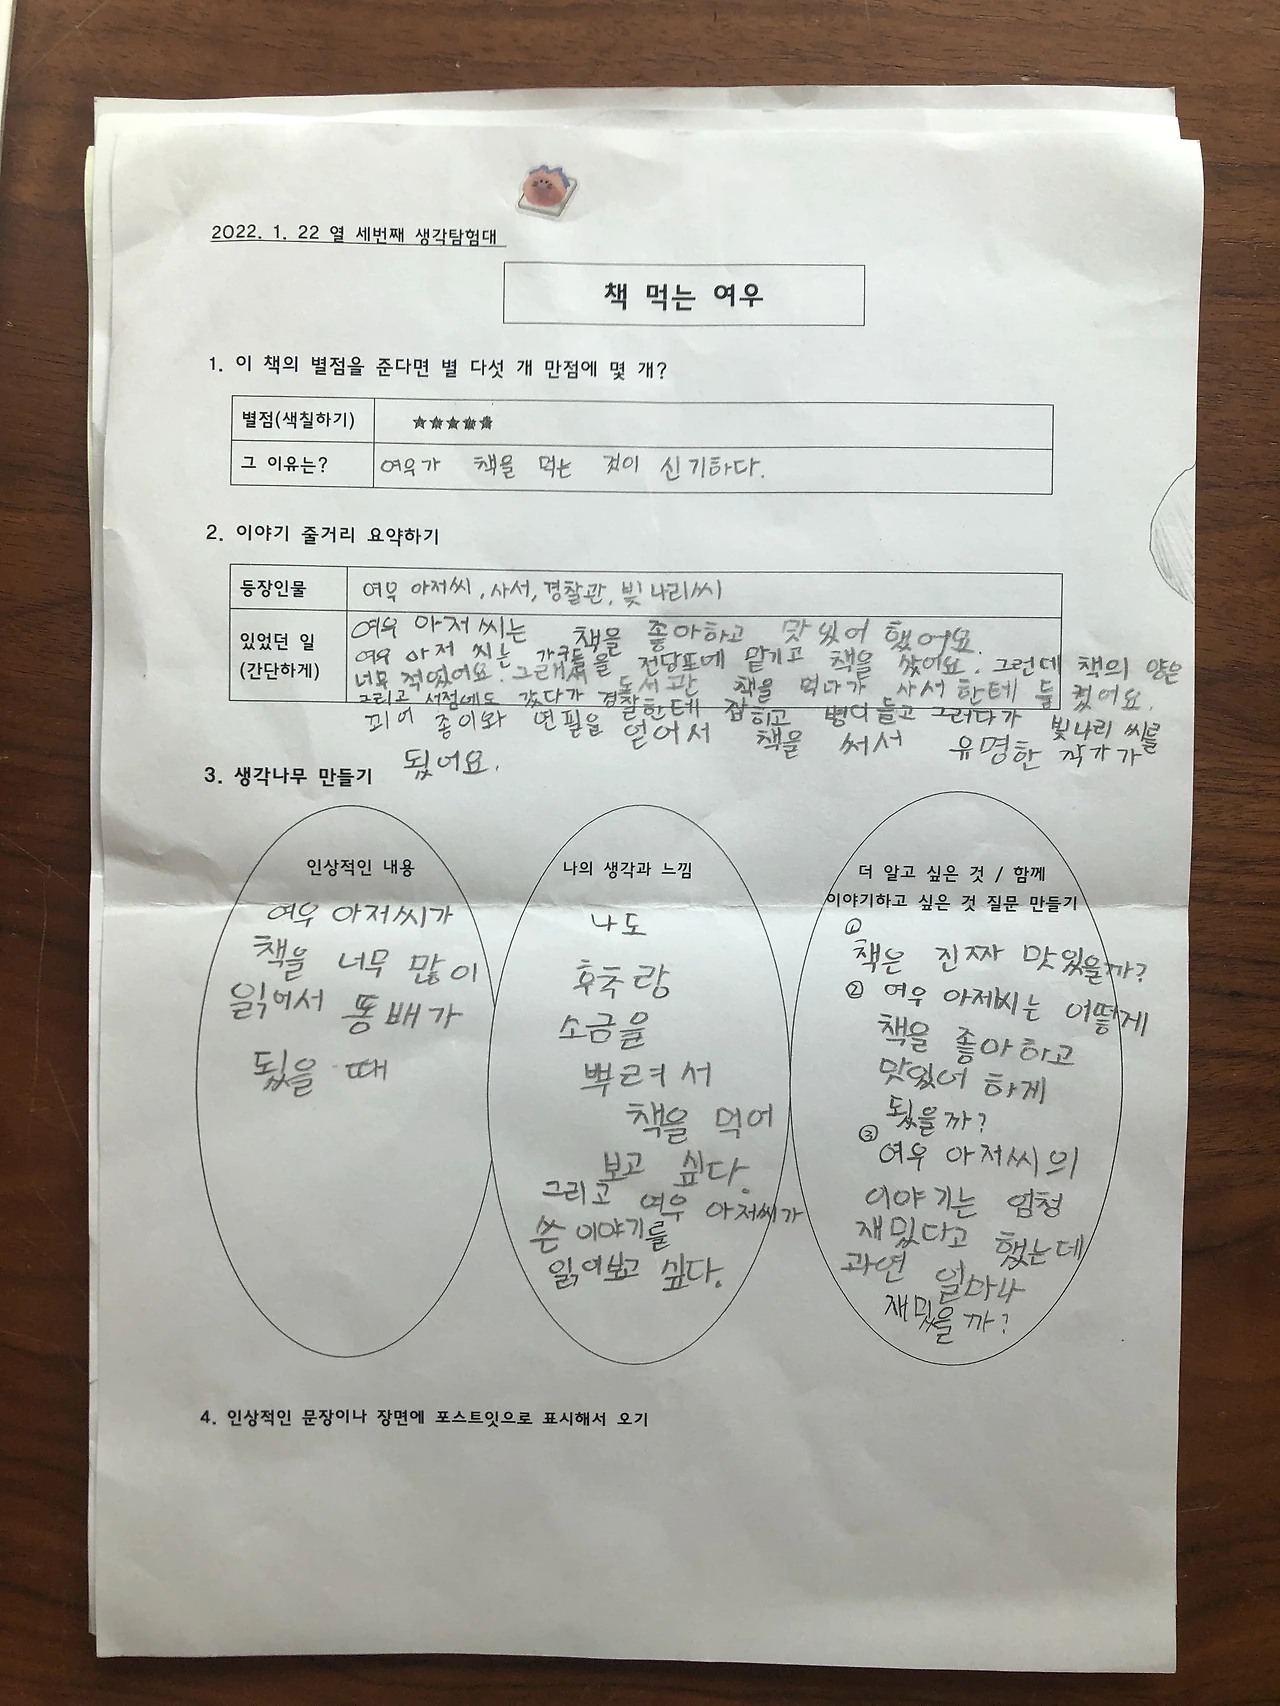 2022. 1. 22 열 세번째 생각탐험대
책 먹는 여우
1. 이 책의 별점을 준다면 별 다섯 개 만점에 몇 개?
별점(색칠하기) ★★★★★
그 이유는? 여우가 책을 먹는 것이 신기하다.
2. 이야기 줄거리 요약하기
등장인물 여우 아저씨, 사서, 경찰관, 빛나리씨
있었던 일
(간단하게)
여우 아저씨는 책을 좋아하고 맛있어 했어요.
여우 아저씨는 가구들을 전당포에 맡기고 책을 샀어요. 그런데 책의 양은
너무 적었어요. 그래서 도서관 책을 먹다가 사서한테 들켰어요.
그리고 서점에도 갔다가 경찰한테 잡히고 병이 들고 그러다가 빛나리 씨를
꾀어 종이와 연필을 얻어서 책을 써서 유명한 작가가
됬어요.
3. 생각나무 만들기
인상적인 내용
여우 아저씨가
책을 너무 많이
읽어서 똥배가
됬을 때
나의 생각과 느낌
나도
후추랑
소금을
뿌려서
책을 먹어
보고 싶다.
그리고 여우 아저씨가
쓴 이야기를
읽어보고 싶다.
더 알고 싶은 것 / 함께
이야기하고 싶은 것 질문 만들기
①
책은 진짜 맛있을까?
② 여우 아저씨는 어떻게
책을 좋아하고
맛있어 하게
됬을까?
③
여우 아저씨의
이야기는 엄청
재밌다고 했는데
과연 얼마나
재밌을까?
4. 인상적인 문장이나 장면에 포스트잇으로 표시해서 오기